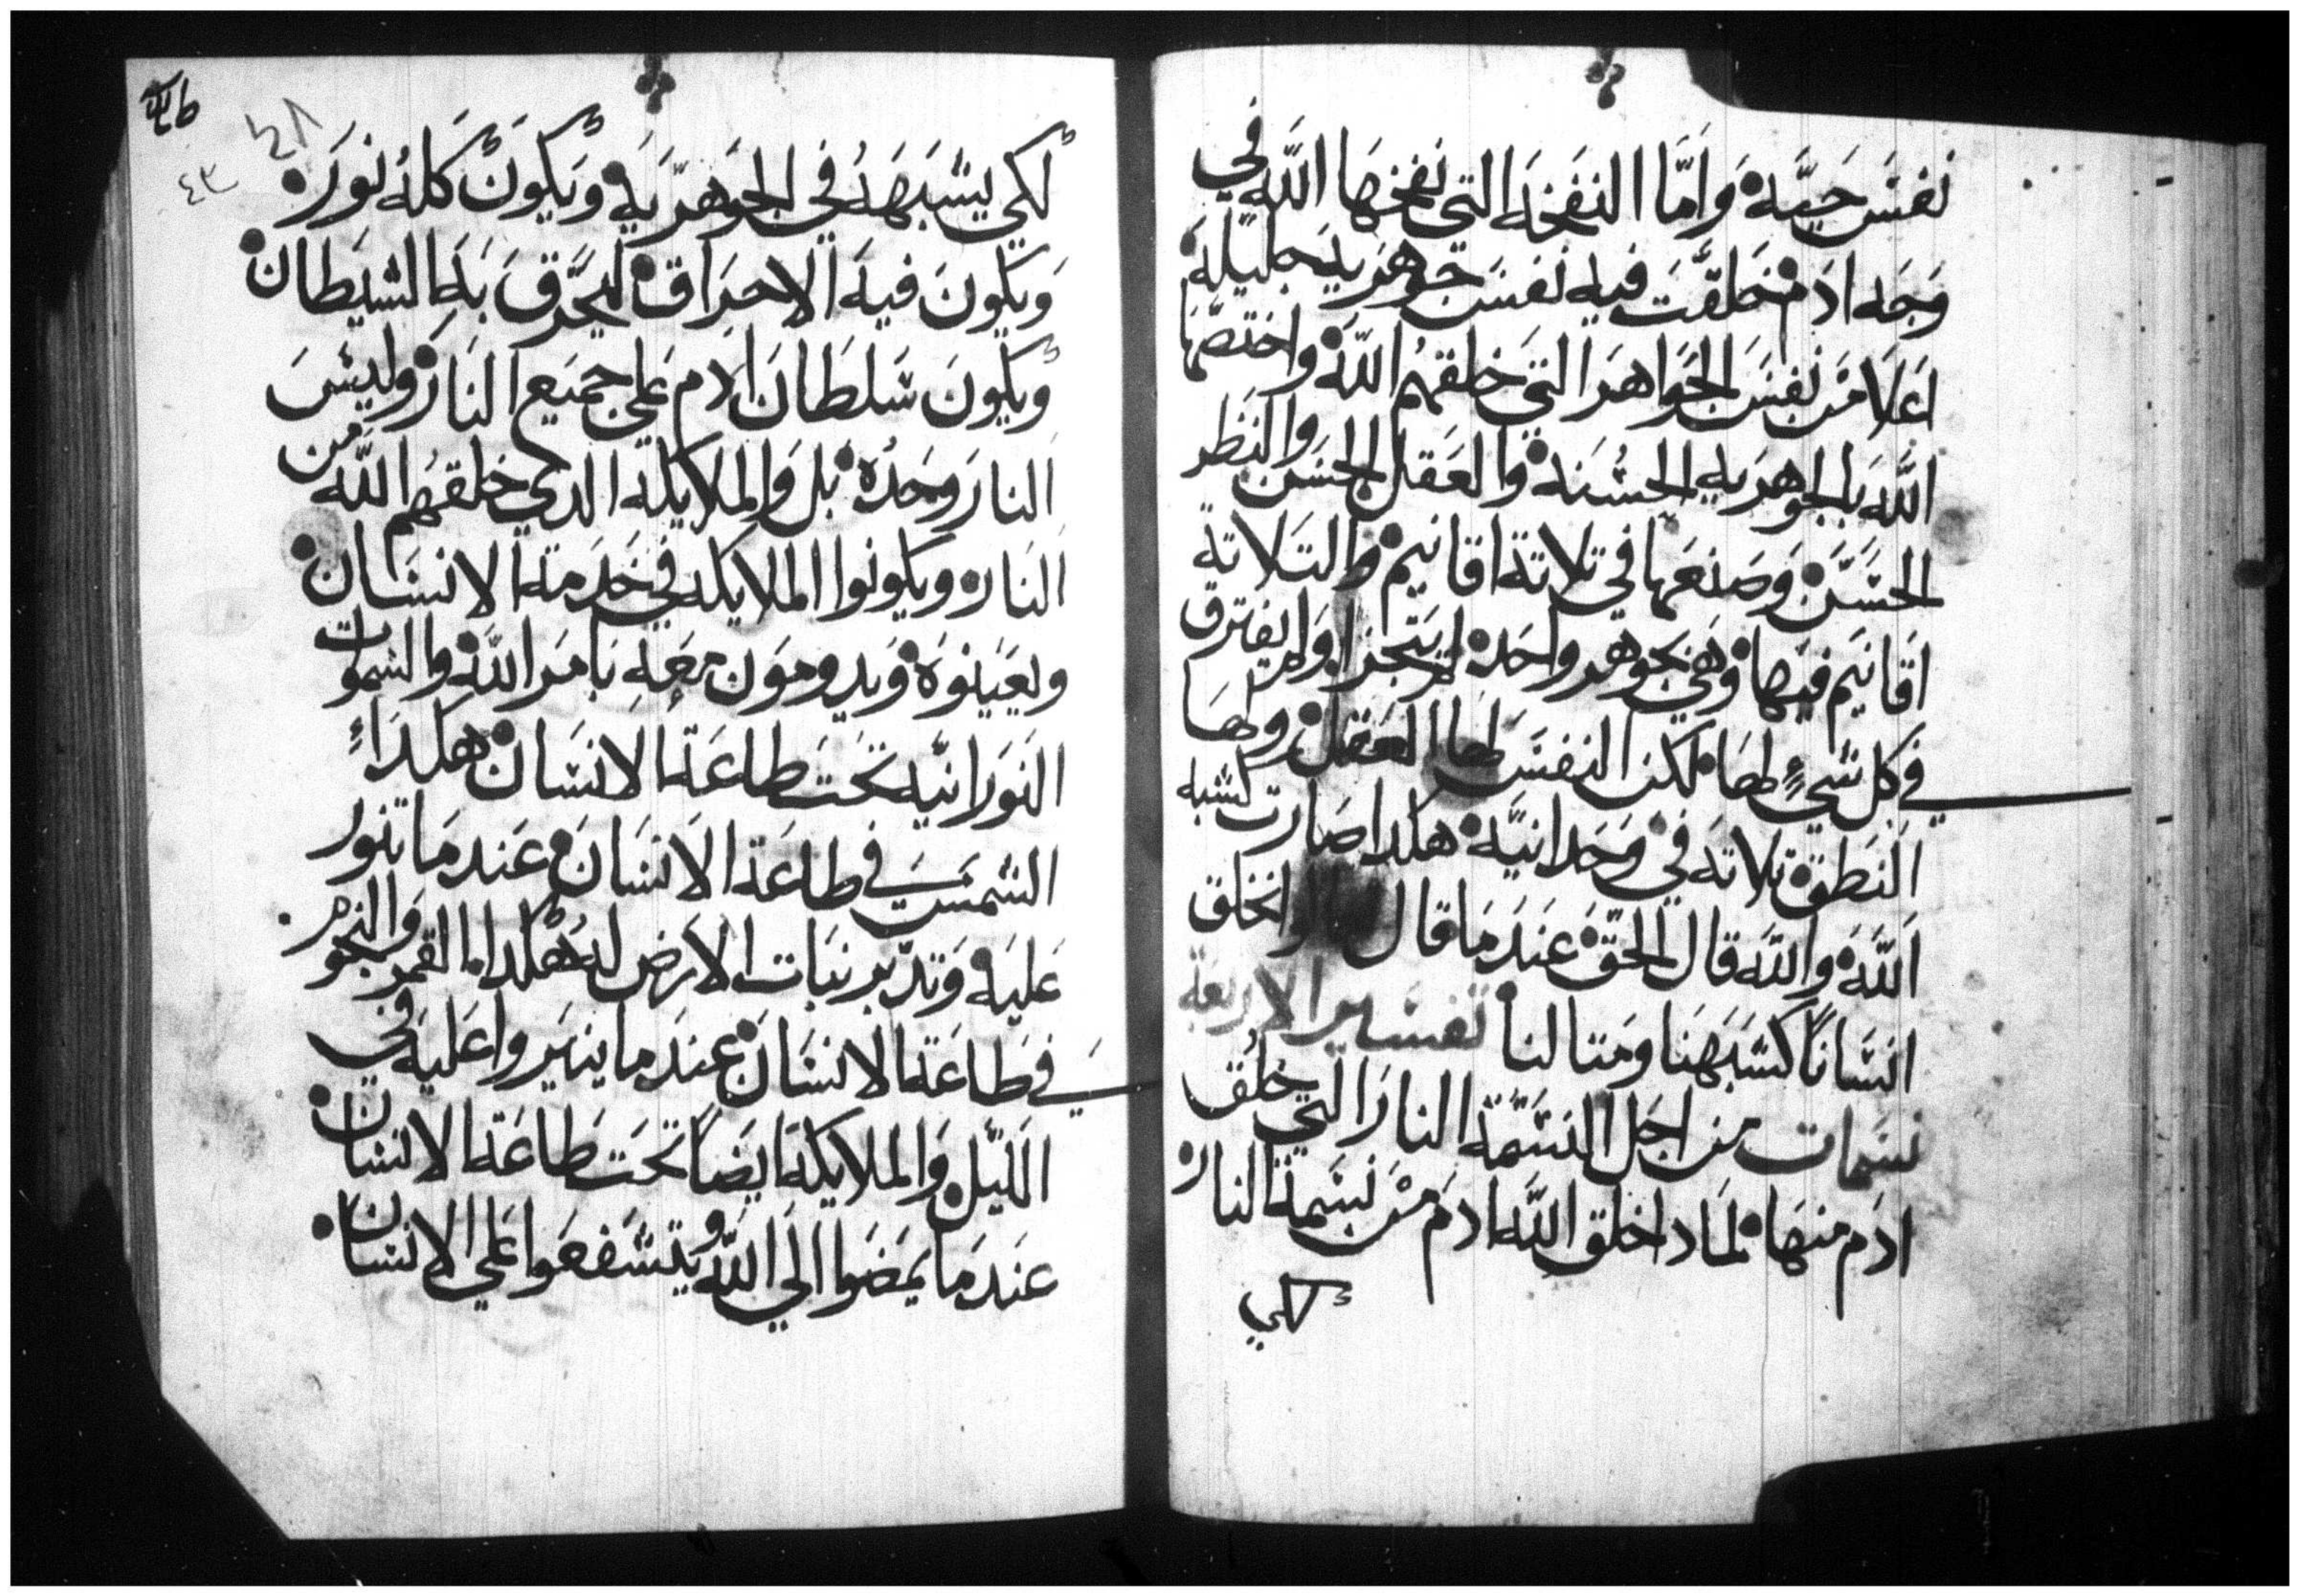 نفس حيَّة وَامَّا النفخه التي نفخها اللَّه في
وَجه ادَم خلقت فيه نفس جوهَريه جليلة
اعَلا مَن نفس الجَواهر التي خلقهم اللَّه واختصّها
اللَّه بَالجوهريه الحسنه والعَقل الحسَن والنَظر
الحسَن وَصنعَها في تلاتة اقانيم والتلاتة
اقانيم فيهَا وَهي بجوهر واحَد لم يتجزا ولم يفترق
في كل شيءٍ لهَا لكن النفس لها العقل ولهَا
النَطق تلاته في وَحَدانيَّة هكدا صَارت لشبه
اللَّه واللَّه قال الحقّ عنَدمَا قال نخلق
انسَاناً كشبَهنَا ومَتالنا تفسير الاربعة
نسَمات من اجَل النسَمة النار التي خلق
ادَم منهَا لمَا داخلق اللَّه ادم مَن نسَمة النار
لكي
٤٨
٤٣
لكي يشبَههُ في الجوهَريَه وَيكونَ كلهُ نورَه
وَيكونَ فيه الاحرَاق ليحَرَّق بَهِ الشيَطان
ويكونَ سَلطانَ ادم عَلي جميع النَار وليسَ من
النارَ وحَدُه بل وَالملايكة الدي خلقهَم اللَّه
النَار ويكونوا الملايكه في خدَمة الانسَان
ويعَينوَه وَيدومَون معَهِ بَامَر اللَّه والسَموات
النَورَانيّه تحَت طاعَة الانسَان هكدَاءٍ
الشمسَ في طاعَة الانسَان عَندمَا تنور
عَليَه وَتدبّر نبَات الارض لهُ هكدا القمر وَالنجوم
في طَاعَة الانسَان عندَما ينيَروا عَليه في
الليّل وَالملايكة ايضَاً تحَت طَاعَة الانسَان
عنَدمَا يمَضَوا الي اللَّه ويتشَفعَوا عَلي الانسَان